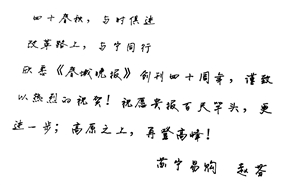 四十春秋，与时俱进
改革路上，与宁同行
欣悉《春城晚报》创刊四十周年，谨致
以热烈的祝贺！祝愿贵报百尺竿头，更
进一步；高原之上，再登高峰！
苏宁易购 赵蓉